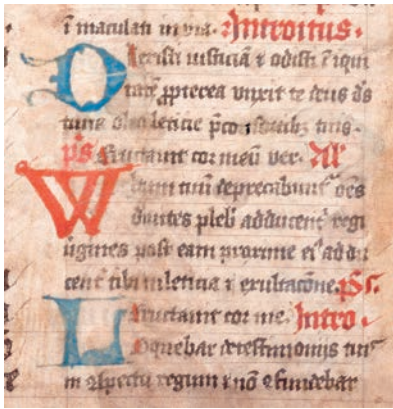 i maculati in via. Introitus.
Dilexisti iusticiā ⁊ odisti īiqui
tatē ꝓpterea vnxit te deus d̄s
tuus oleo leticie p̄ cōsortibꝫ tuis.
p̄s Eructauit cor meū ver. All
Wltum tuū deprecabunt᷑ oēs
diuites plebis adducent᷑ regi
uirgines post eam proxime ei᷑ addu
cent᷑ tibi in leticia ⁊ exultacōne. ps.
Eructauit cor me. Intro.
Loquebar de testimonijs tuis
in ꝯspectu regum ⁊ nō ꝯfundebar